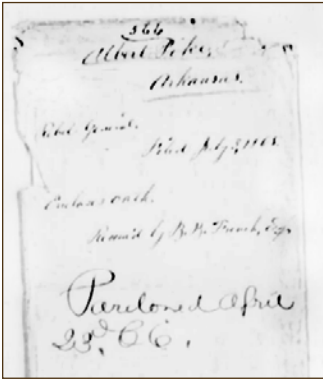 366
Albert Pike,
Arkansas.
Rebel General.
Filed July 3, 1865.
Encloses oath.
Recom'd by B. B. French, Esq.
Pardoned April
23d, 66.